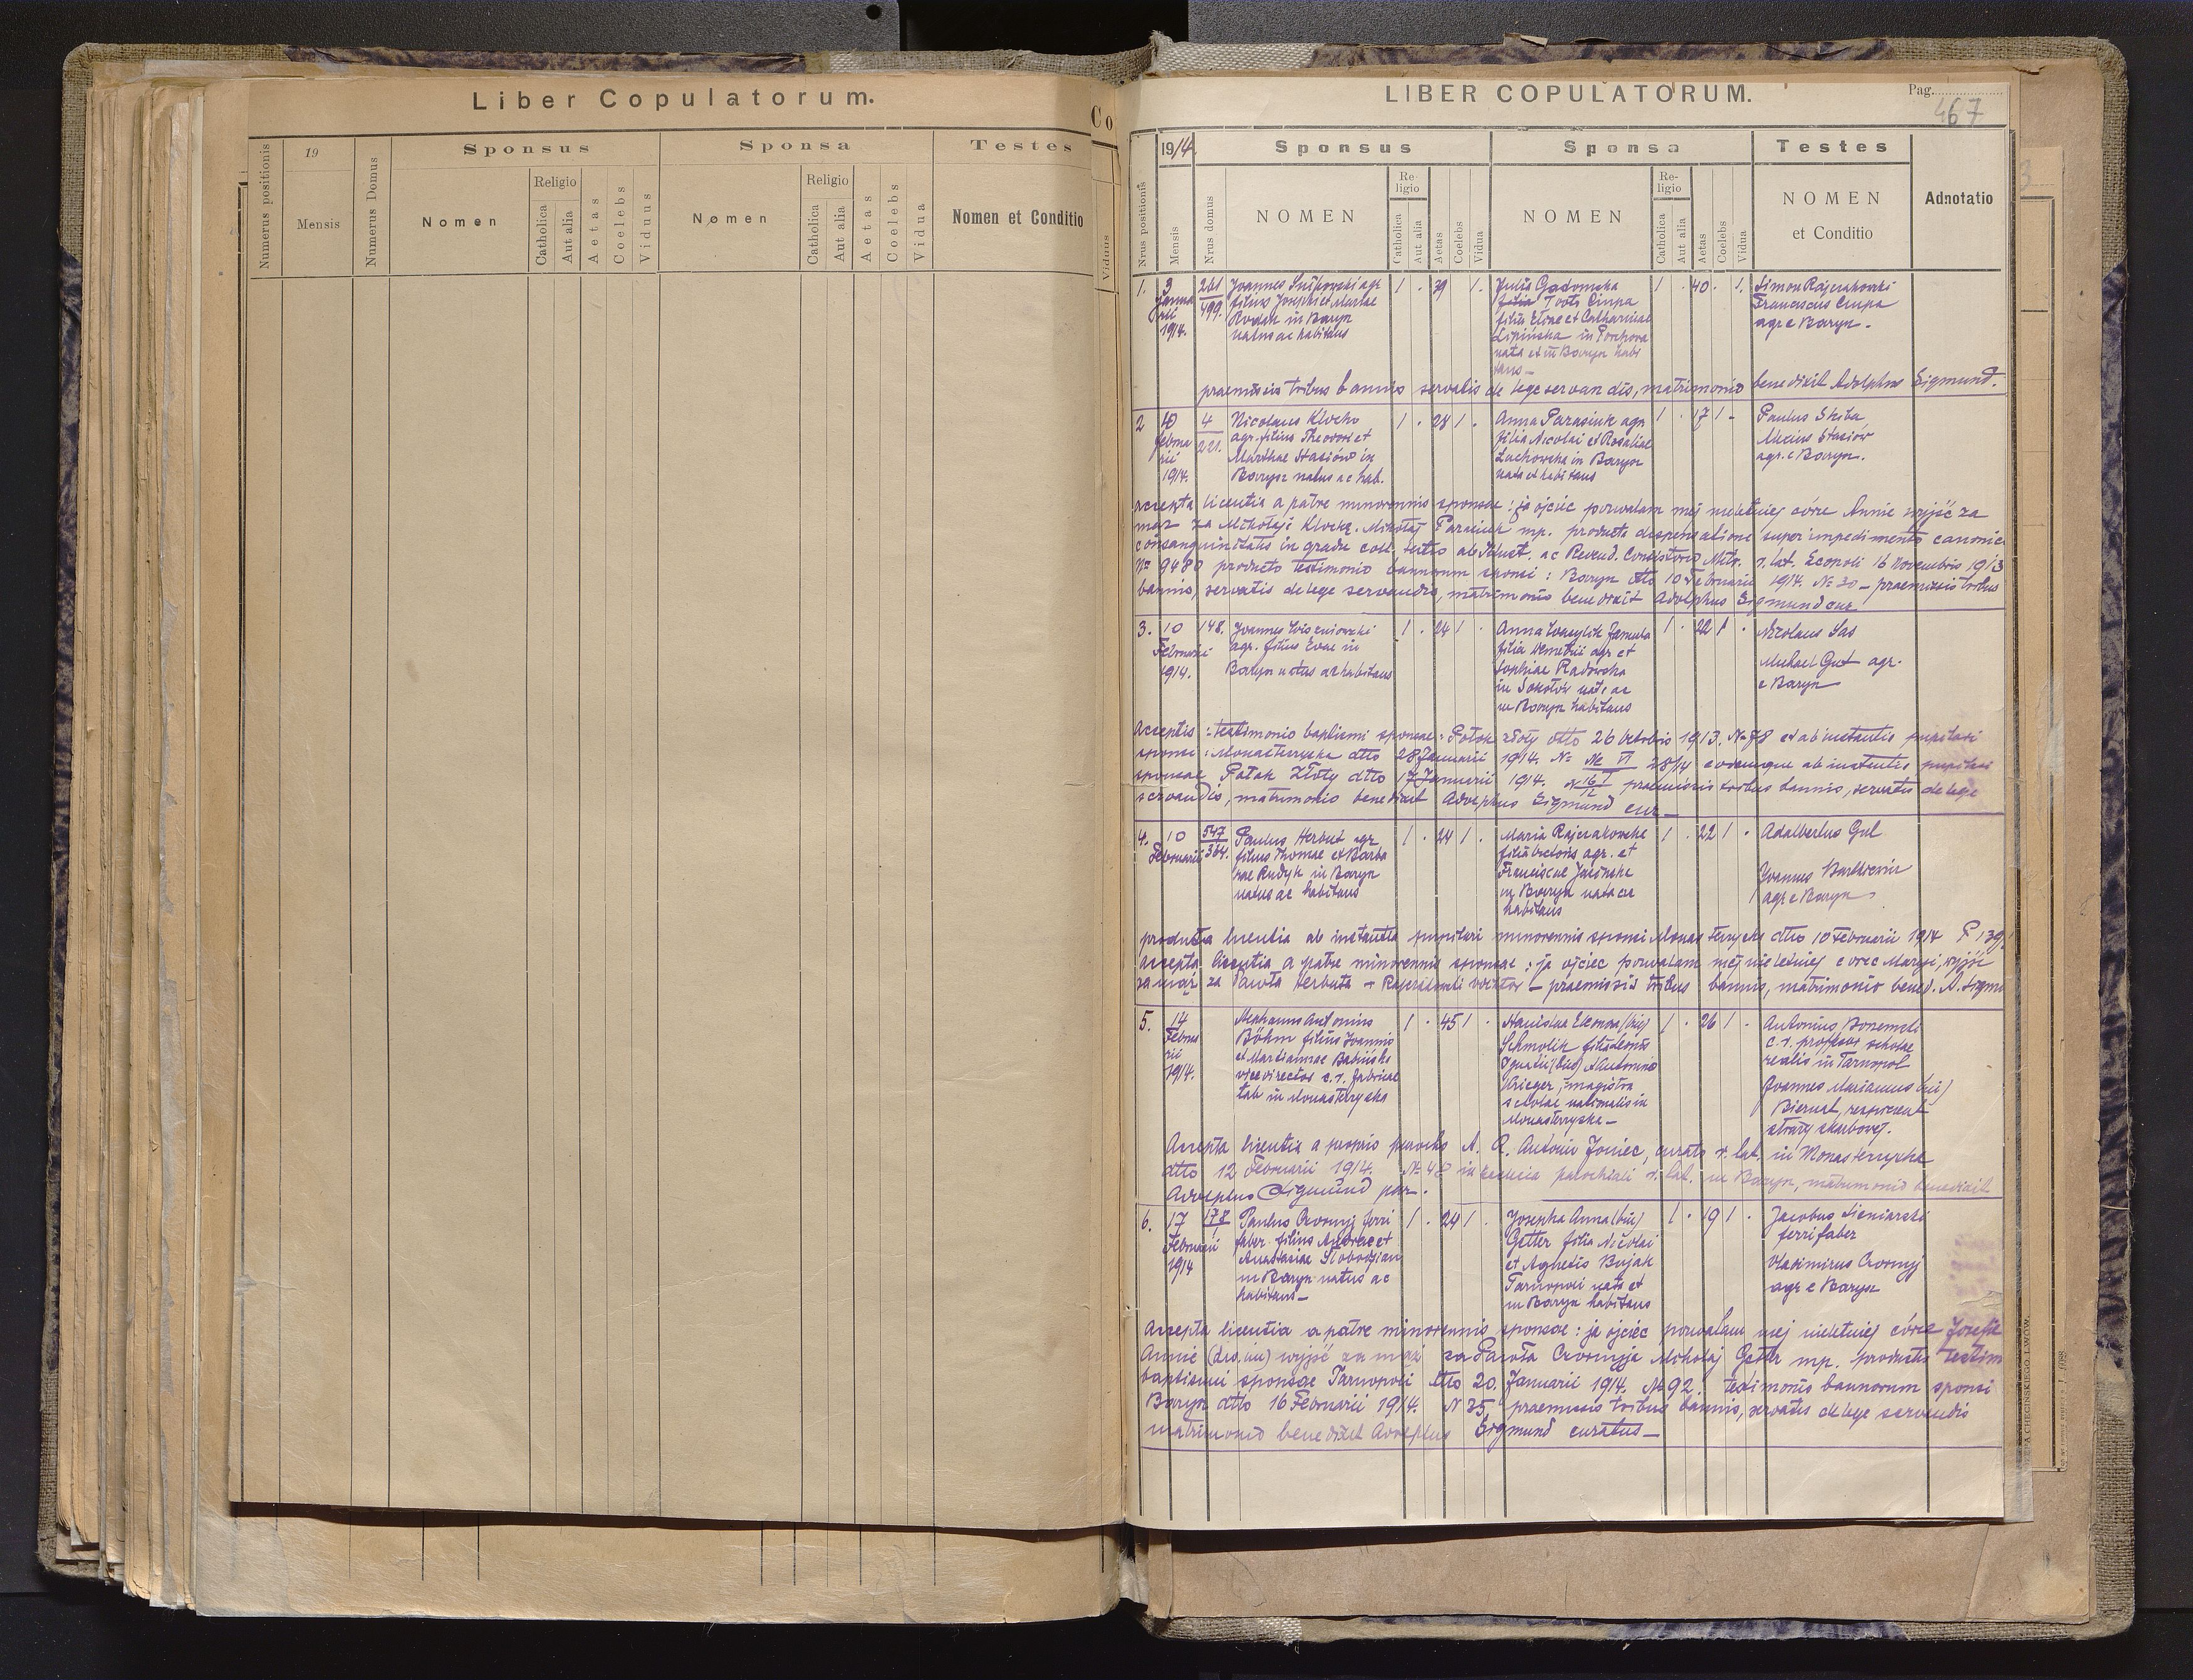 Liber Copulatorum.
Numerus positionis
19
Mensis
Numerus Domus
Sponsus
Nomen
Religio
Catholica
Aut alia
Aetas
Coelebs
Viduus
Sponsa
Nomen
Religio
Catholica
Aut alia
Aetas
Coelebs
Vidua
Testes
Nomen et Conditio
Co
Viduus
LIBER COPULATORUM.
Pag.
467
Nrus positionis
1914
Mensis
Nrus domus
Sponsus
NOMEN
Re-
ligio
Catholica
Aut alia
Aetas
Coelebs
Vidua
Sponsa
NOMEN
Re-
ligio
Catholica
Aut alia
Aetas
Coelebs
Vidua
Testes
NOMEN
et Conditio
Adnotatio
1.
3
Janua
rii
1914.
261
499.
Joannes agr
filius Josephi et Mariae
Rudyk in Barysz
natus ac habitans
1 . 39 1.
Julia Gadomska
filia Voto Czupa
filia Eliae et Catharinae
Lipińska in
nata et in Barysz habi
tans
1 . 40 . 1.
Simon Rajczakowski
Franciscus Czupa
agr e Barysz.
praemissis tribus bannis servatis de lege servandis, matrimonio benedixit Adolphus Sigmund.
2
10
februa
rii
1914.
4
221.
Nicolaus Klocko
agr. filius Theodori et
Marthae Stasiów in
Barysz natus ac hab.
1 . 28 1 .
Anna Parasiuk agr
filia Nicolai et Rosaliae
Lachowska in Barysz
nata et habitans
1 . 17 1 -
Paulus Skiba
Alexius Stasiów
agr. e Barysz.
accepta licentia a patre minorennis sponsae: ja ojciec pozwalam mej nieletniej córce Annie wyjść za
mąż za Mikołaja Klocko. Mikołaj Parasiuk mp. producta dispensatione super impedimento canonico
consanguinitatis in gradu coll. tertio ab Illust. ac Reverend. Consistorio Metr. r. lat. Leopoli 16 Novembris 1913
Nr 9480 producto testimonio bannorum sponsi: Barysz dtto 10 Februarii 1914. № 30 - praemissis tribus
bannis, servatis de lege servandis, matrimonio benedixit Adolphus Sigmund cur
3.
10
Februarii
1914.
148.
Joannes Wiszniowski
agr. filius Evae in
Barysz natus ac habitans
1 . 24 1 .
Anna Wasylik famula
filia Demetrii agr et
Sophiae Radowska
in Sokołów nata ac
in Barysz habitans
1 . 22 1 .
Nicolaus Sas
Michael Gut agr.
e Barysz
Acceptis: testimonio baptismi sponsae: Potok złoty dtto 26 Octobris 1913. № 78 et ab instantis pupilari
sponsi: Monasterzyska dtto 28 Januarii 1914. № Nc VI 28/14 eodemque ab instantis pupilari
sponsae Potok Złoty dtto 17 Januarii 1914. praemissis tribus bannis, servatis de lege
servandis, matrimonio benedixit Adolphus Sigmund cur
4.
10
Februarii
547
364.
Paulus Herbut agr
filius Thomae et Barba
rae Rudyk in Barysz
natus ac habitans
1 . 24 1 .
Maria Rajczakowska
filia Victoris agr. et
Franciscae Jasińska
in Barysz nata ac
habitans
1 . 22 1 .
Adalbertus Gul
Joannes Bartkiewicz
agr e Barysz
producta licentia ab instantia pupilari minorennis sponsi Monasterzyska dtto 10 Februarii 1914 P 139
accepta licentia a patre minorennis sponsae: ja ojciec pozwalam mej nieletniej córce Maryi, wyjść
za mąż za Pawła Herbuta - Rajczakowski Wiktor - praemissis tribus bannis, matrimonio bened. A. Sigmu
5.
14
Februa
rii
1914.
Stephanus Antonius
Böhm filius Joannis
et Mariannae Babiński
vicedirector c. r. fabricae
tab in Monasterzyska
1 . 45 1 .
Stanislaa Eleonora (bin)
Schmolik filia Leonis
Ignatii (bin) et Antonina
Krieger, magistra
scholae nationalis in
Monasterzyska
1 . 26 1 .
Antonius Boremski
c. r. professor scholae
realis in Tarnopol
Joannes Marianus (bin)
Biernat, respicient
straży skarbowej.
Accepta licentia a proprio parocho A. R. Antonio Joniec, curato r. lat. in Monasterzyska
dtto 12 Februarii 1914. № 40 in ecclesia parochiali r. lat. in Barysz, matrimonio benedixit
Adolphus Sigmund par.
6.
17
Februarii
1914
178
Paulus Czornyj ferri
faber filius Andreae et
Anastasiae Slobodzian
in Barysz natus ac
habitans
1 . 24 1 .
Josepha Anna (bin)
Getter filia Nicolai
et Agnetis Bujak
Tarnopoli nata et
in Barysz habitans
1 . 19 1 .
Jacobus Sieniarski
ferrifaber
Vladimirus Czornyj
agr e Barysz
Accepta licentia a patre minorennis sponsae: ja ojciec pozwalam mej nieletniej córce Józefie
Annie (dw. im) wyjść za mąż za Pawła Czornyja Mikołaj Getter mp. producto testim
baptismi sponsae Tarnopoli dtto 20. Januarii 1914. № 92. testimonio bannorum sponsi
Barysz dtto 16 Februarii 1914. N 35, praemissis tribus bannis, servatis de lege servandis
matrimonio benedixit Adolphus Sigmund curatus